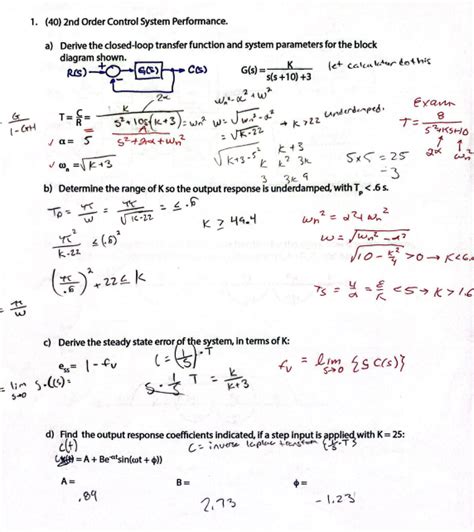 1. (40) 2nd Order Control System Performance.
a) Derive the closed-loop transfer function and system parameters for the block
diagram shown.
R(s) + - G(s) C(s)
G(s)= K / s(s+10)+3
let calculator do this
T = C/R = K / s²+10s(K+3) = ωn²
s²+2αs+ωn²
2α
ωn²-α²+ω²
ω = √ωn²-α²
= √K-22
√K+3-5²
→ K>22 underdamped.
G / 1-GH
α = 5
ωn = √K+3
K+3
K K² 3K
3 3K 9
5×5=25
-3
Exam
T = 8 / s²+Ks+10
2α ωn²
b) Determine the range of K so the output response is underdamped, with Tp < .6 s.
Tp = π/ω = π/√K-22 = ≤ .6
K ≥ 49.4
π²/K-22 ≤ (.6)²
(π/.6)² + 22 ≤ K
= π/ω
ωn² = α²+ωn²
ω = √ωn²-α²
√10-K²/4 >0 → K<6.
Ts = 4/α = 8/K <5 → K>1.6
c) Derive the steady state error of the system, in terms of K:
ess = 1 - fv
C = (1/s)·T
fv = lim s→0 {s C(s)}
= lim s→0 s·C(s) =
s·1/s T = K/K+3
d) Find the output response coefficients indicated, if a step input is applied with K = 25:
c(t)
C = inverse laplace transform {1/s·T}
= A + Be⁻ᵅᵗsin(ωt + ϕ))
A =
B =
ϕ =
.89
2.73
-1.23